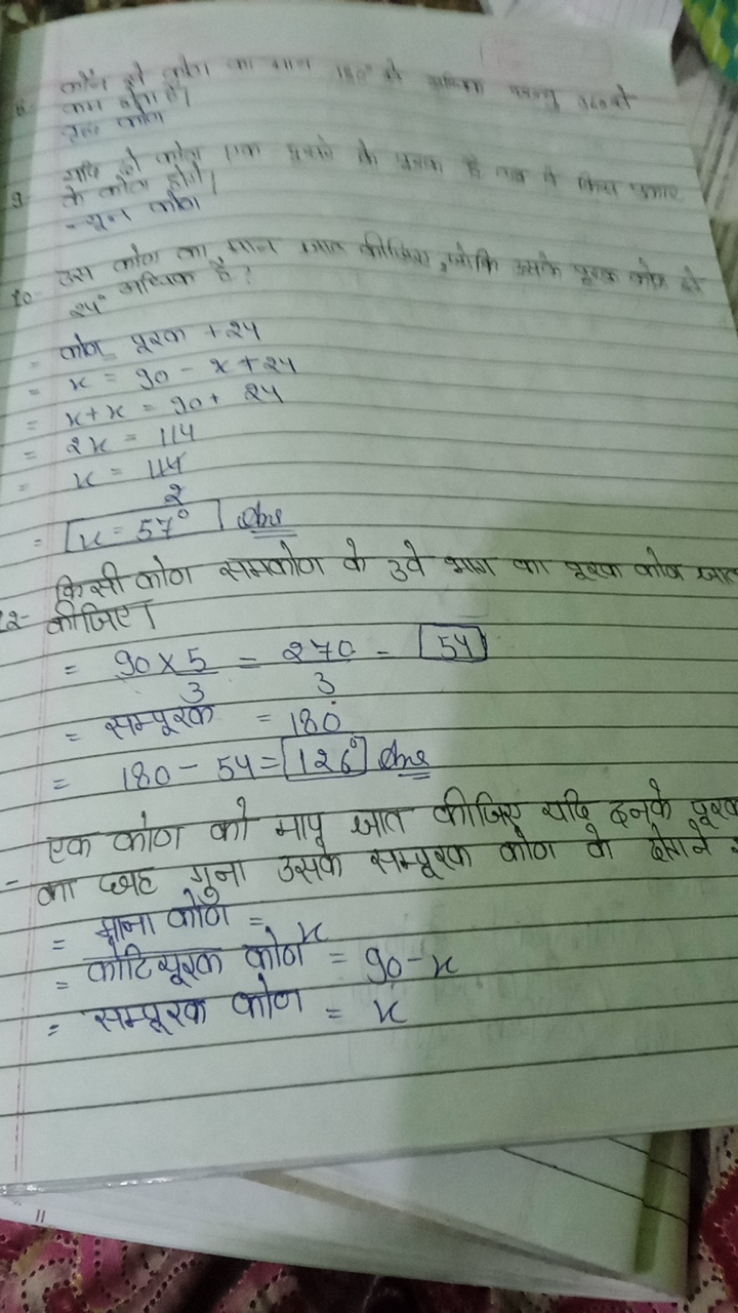 8- कौन से कोण का मान 180° से अधिक परन्तु 360 से
कम होता है।
कोण
9- यदि दो कोण एक दूसरे के पूरक है तब वे किस प्रकार
के कोण होंगे।
- न्यून कोण
10- उस कोण का मान ज्ञात कीजिए, जोकि उसके पूरक कोण से
24° अधिक है?
= कोण पूरक + 24
= x = 90 - x + 24
= x + x = 90 + 24
= 2x = 114
= x = 114
2
= x = 57° Ans
किसी कोण समकोण के 3वे भाग का पूरक कोण ज्ञात
2- कीजिए।
= 90 × 5 = 270 - 54
3 3
= सम्पूरक = 180
= 180 - 54 = 126° Ans
एक कोण की माप ज्ञात कीजिए यदि इनके पूरक
- का छह गुना उसके सम्पूरक कोण के
= माना कोण = x
= कोटिपूरक कोण = 90 - x
= सम्पूरक कोण = x